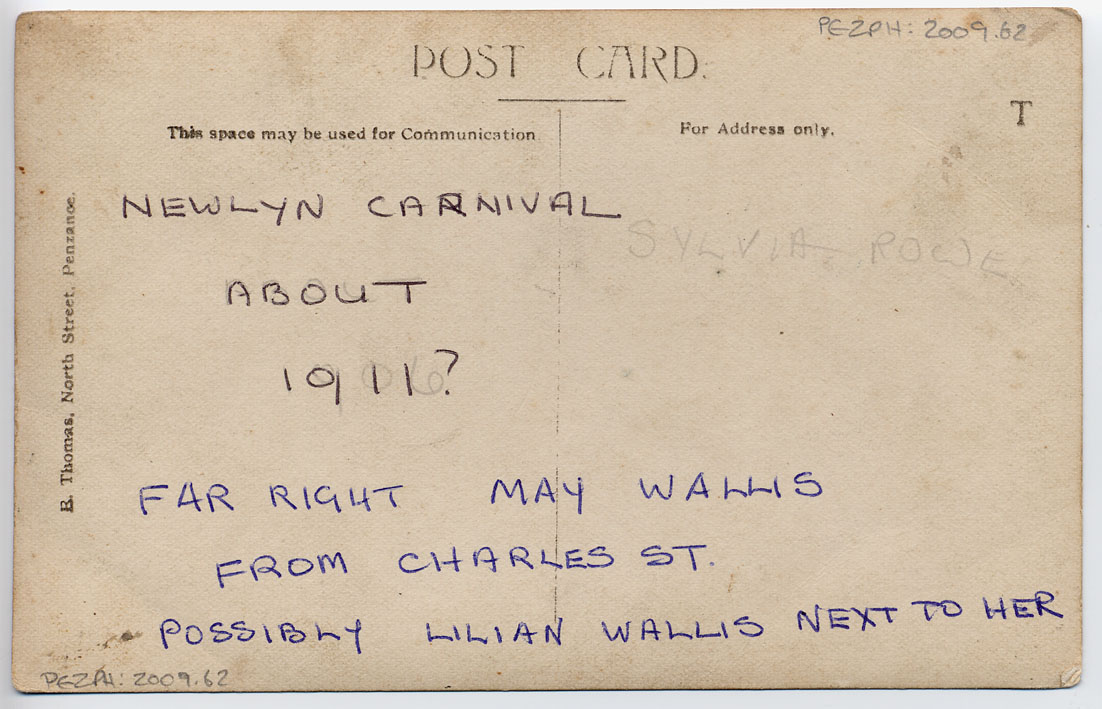 PEZPH: 2009.62
POST CARD.
T
This space may be used for Communication
For Address only.
B. Thomas, North Street, Penzance.
NEWLYN CARNIVAL
SYLVIA ROWE
ABOUT
1911?
FAR RIGHT MAY WALLIS
FROM CHARLES ST.
POSSIBLY LILIAN WALLIS NEXT TO HER
PEZPH: 2009.62